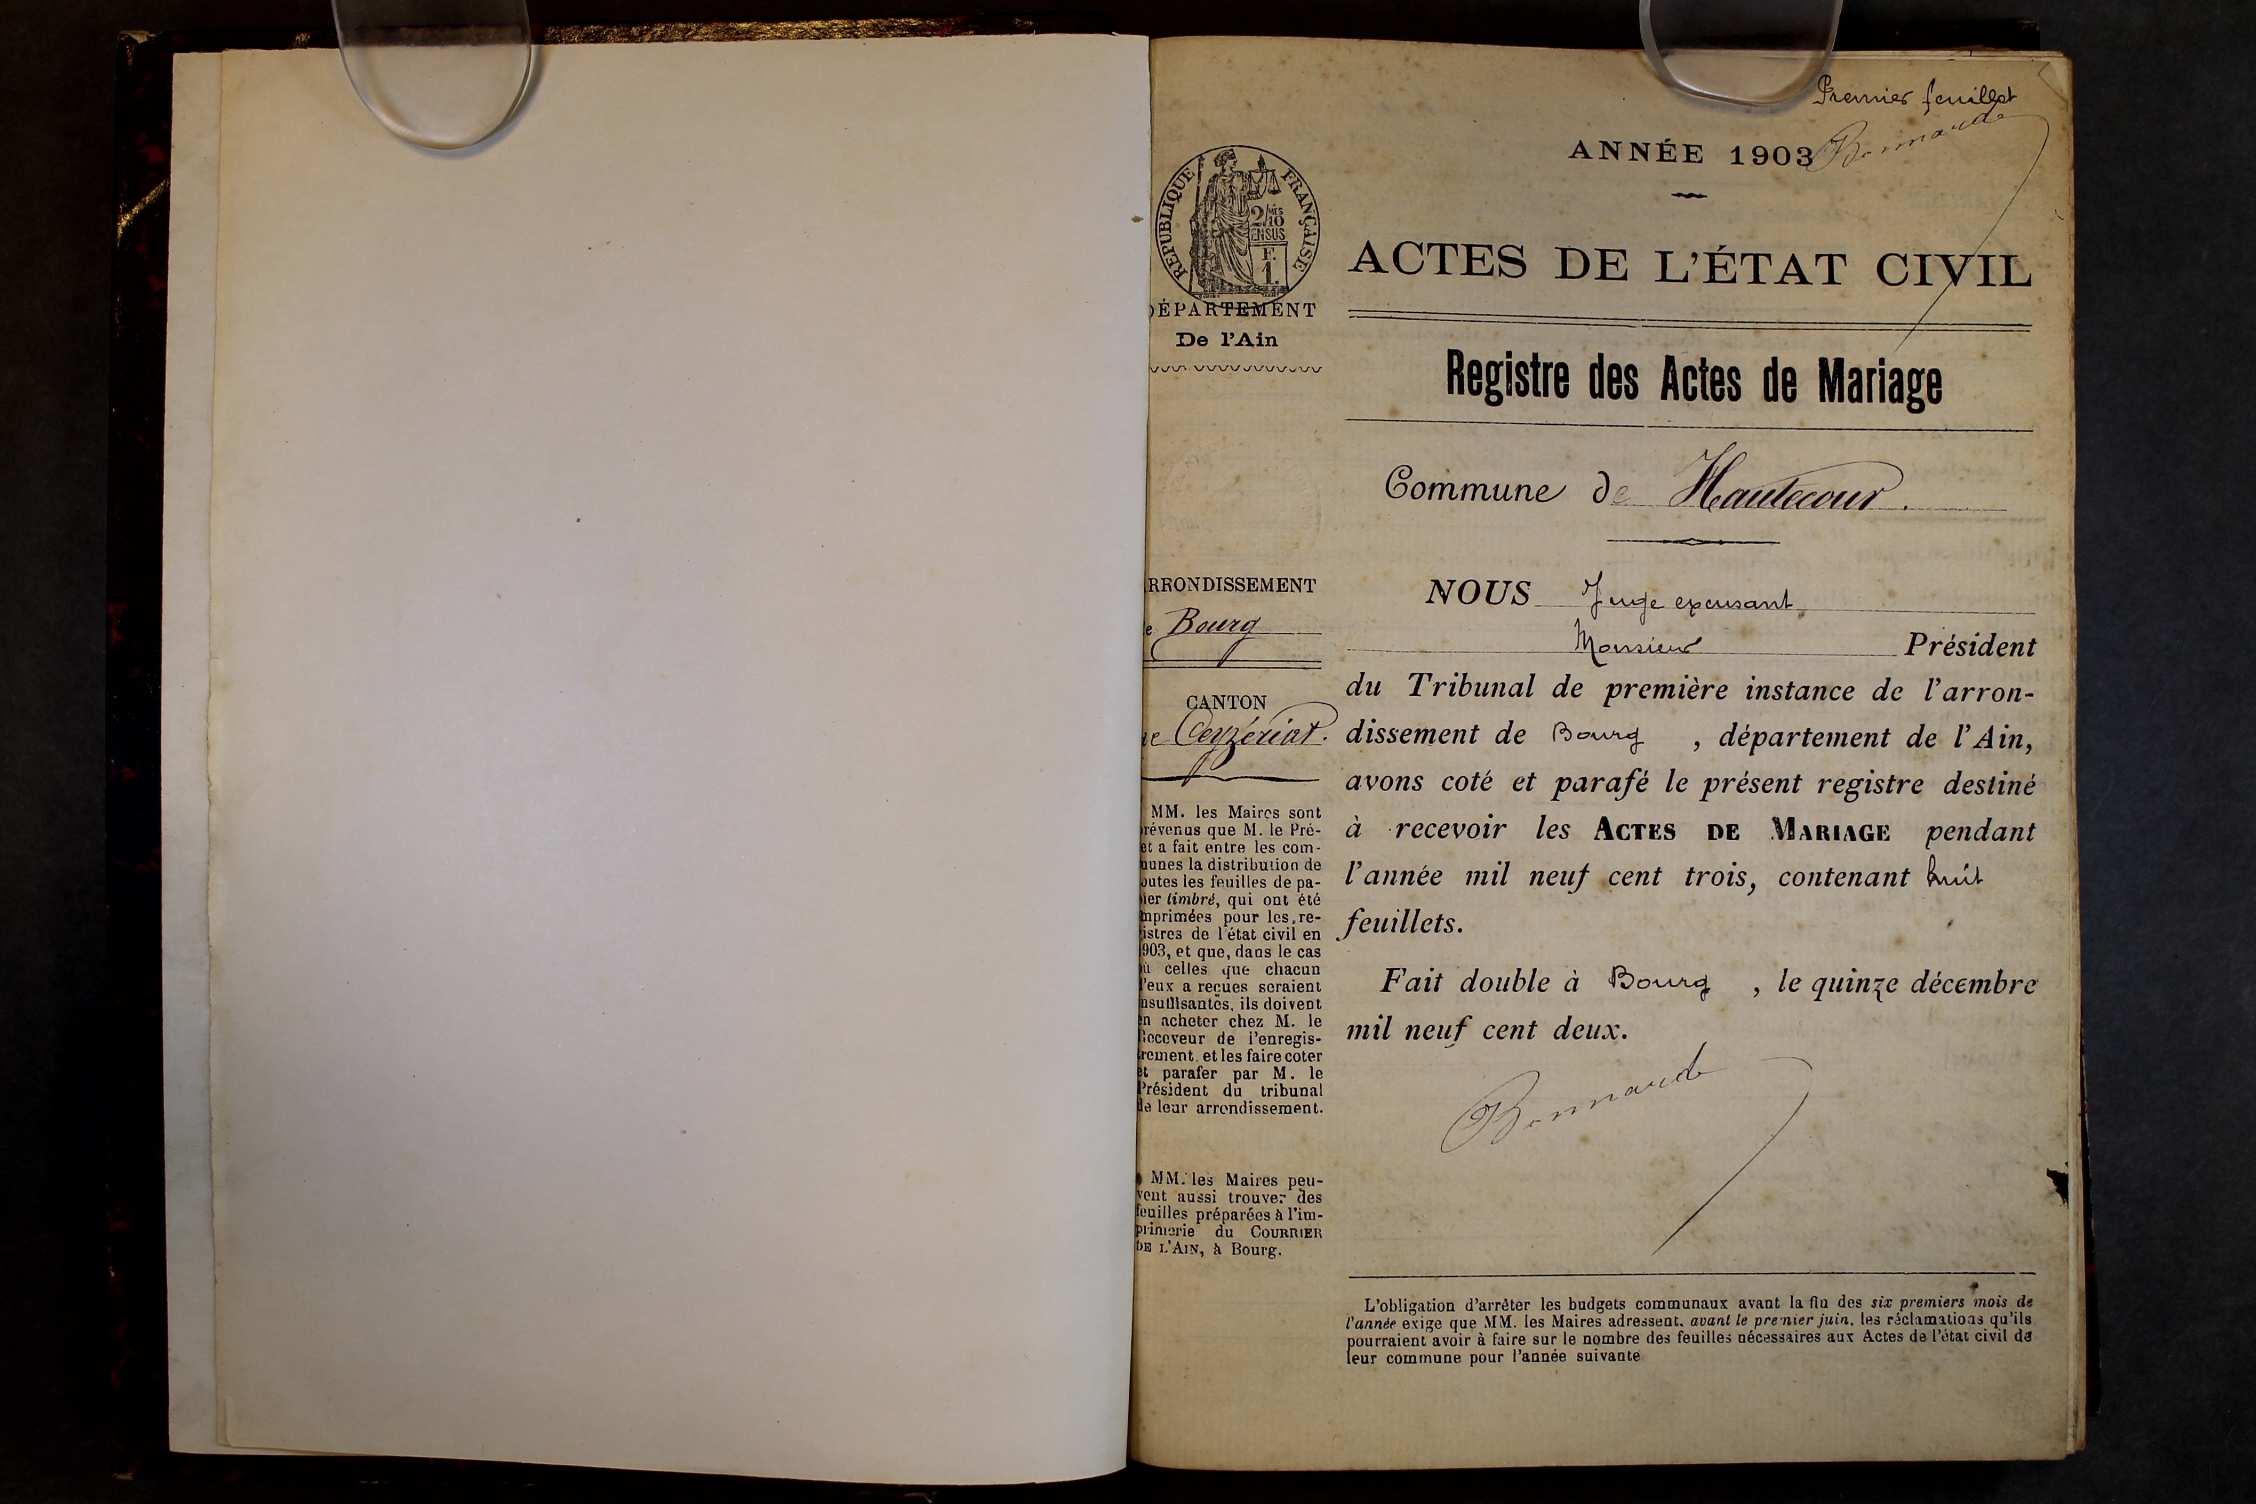 Premier feuillet
Bonnarde
ANNÉE 1903
RÉPUBLIQUE FRANÇAISE
2/10 MES
EN SUS
F.
1.
ACTES DE L'ÉTAT CIVIL
DÉPARTEMENT
De l'Ain
Registre des Actes de Mariage
Commune de Hautecour.
RRONDISSEMENT
e Bourg
CANTON
e Ceyzériat.
MM. les Maires sont
révenus que M. le Pré-
et a fait entre les com-
unes la distribution de
outes les feuilles de pa-
ier timbré, qui ont été
mprimées pour les re-
istres de l'état civil en
903, et que, dans le cas
ù celles que chacun
'eux a reçues seraient
nsuffisantes, ils doivent
n acheter chez M. le
eceveur de l'enregis-
rement, et les faire coter
t parafer par M. le
Président du tribunal
de leur arrondissement.
MM. les Maires peu-
vent aussi trouver des
feuilles préparées à l'im-
primerie du COURRIER
DE L'AIN, à Bourg.
NOUS Juge excusant
Monsieur Président
du Tribunal de première instance de l'arron-
dissement de Bourg , département de l'Ain,
avons coté et parafé le présent registre destiné
à recevoir les ACTES DE MARIAGE pendant
l'année mil neuf cent trois, contenant huit
feuillets.
Fait double à Bourg , le quinze décembre
mil neuf cent deux.
Bonnarde
L'obligation d'arrêter les budgets communaux avant la fin des six premiers mois de
l'année exige que MM. les Maires adressent, avant le premier juin, les réclamations qu'ils
pourraient avoir à faire sur le nombre des feuilles nécessaires aux Actes de l'état civil de
leur commune pour l'année suivante